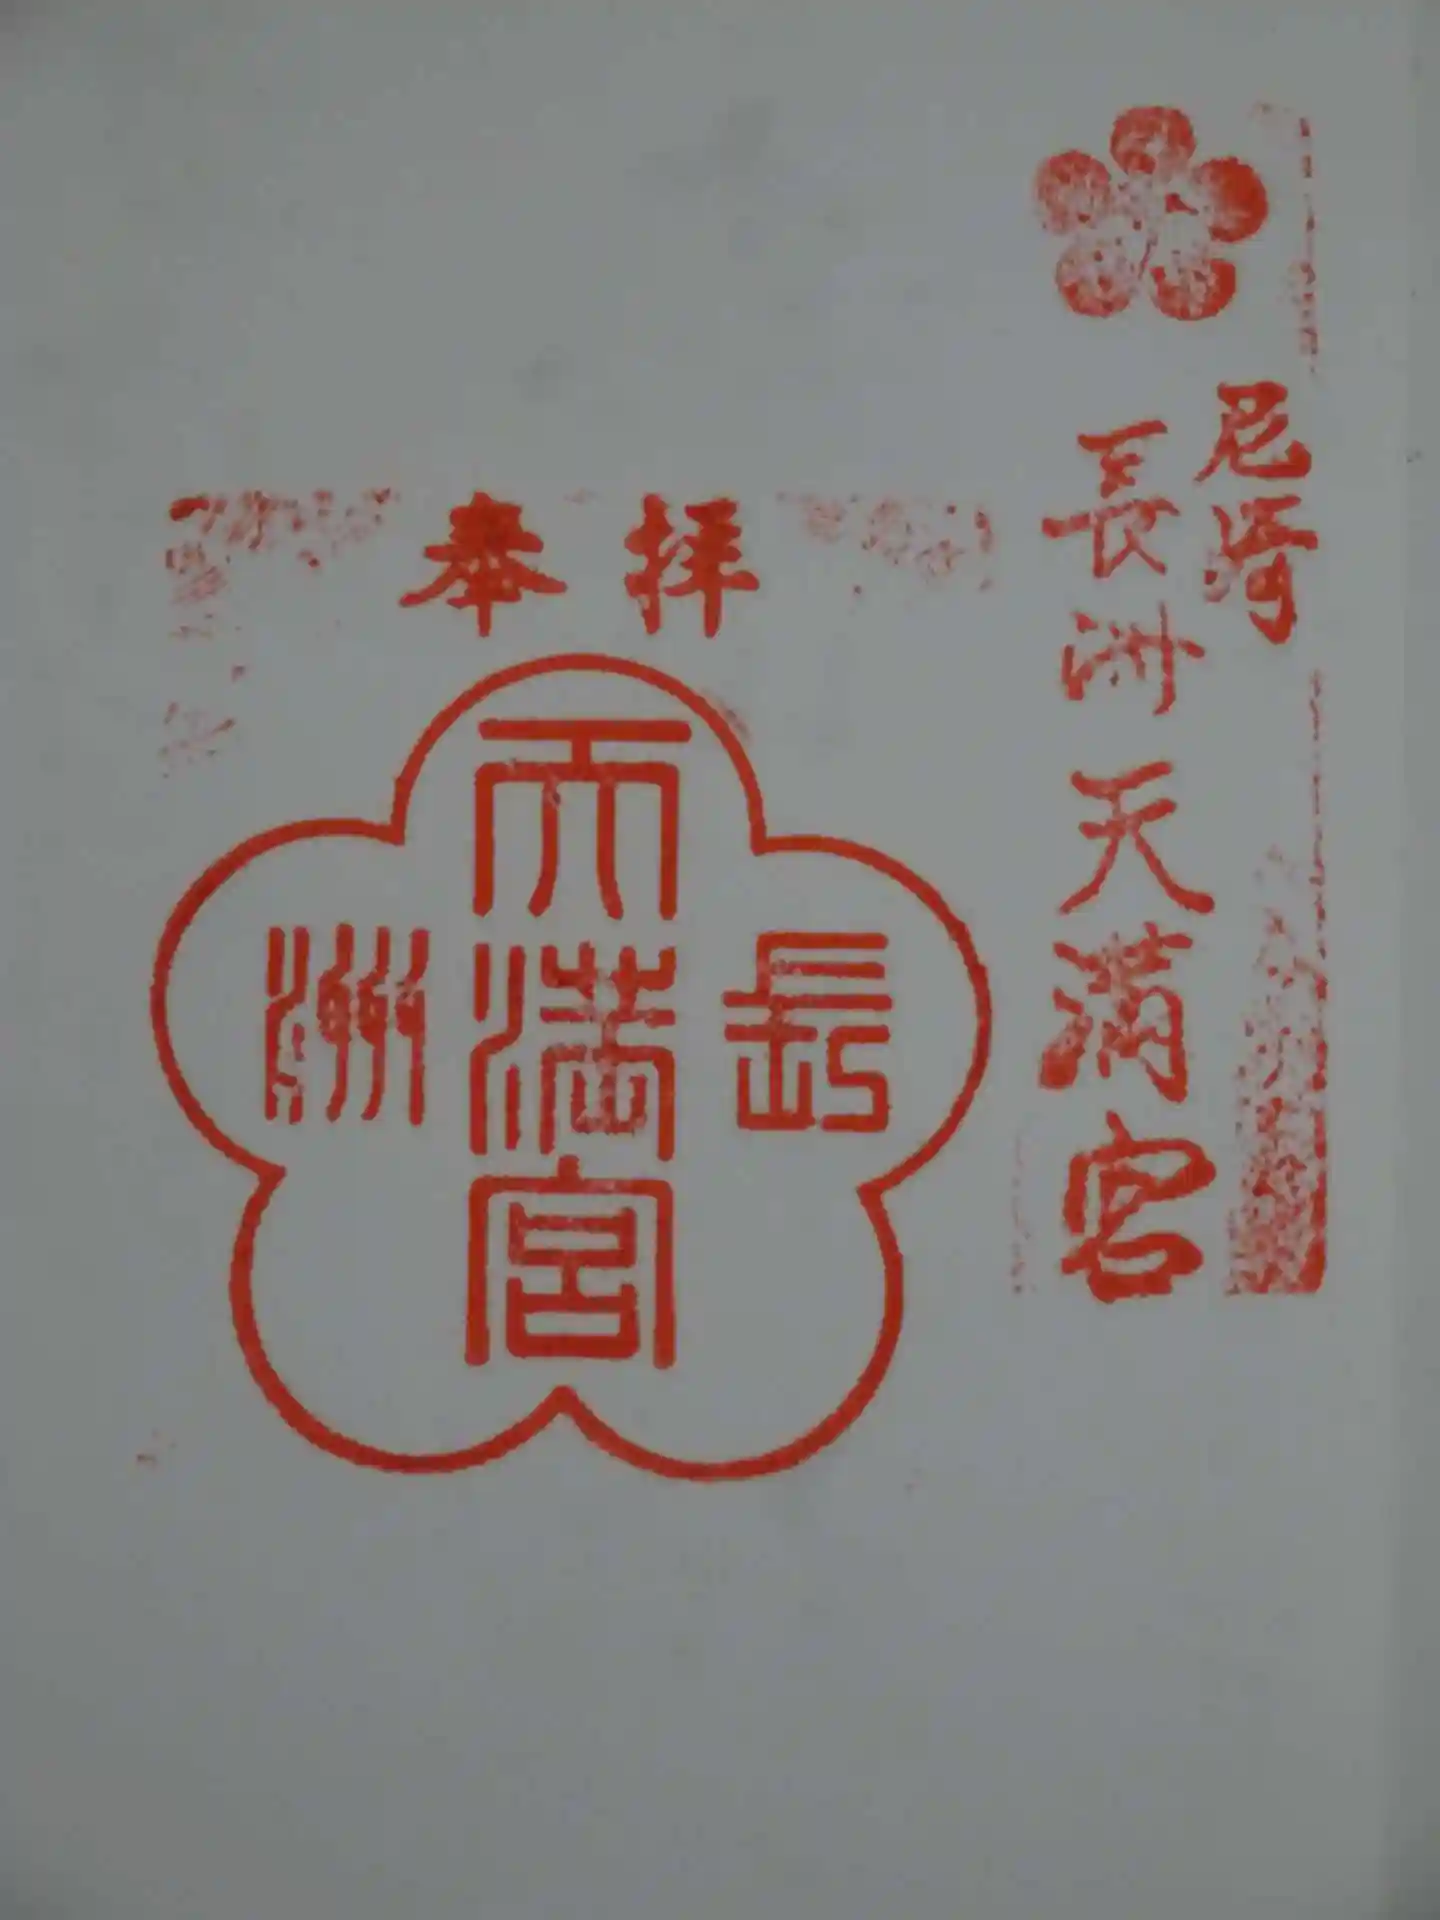 尼崎
長洲天満宮
奉拝
長洲
天満宮